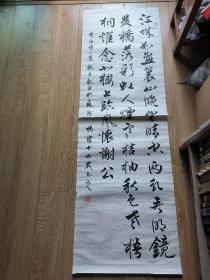 江城如畫裏山晚望晴空兩水夾明鏡
雙橋落彩虹人煙寒橘柚秋色老梧
桐誰念北樓上臨風懷謝公
李白詩一首